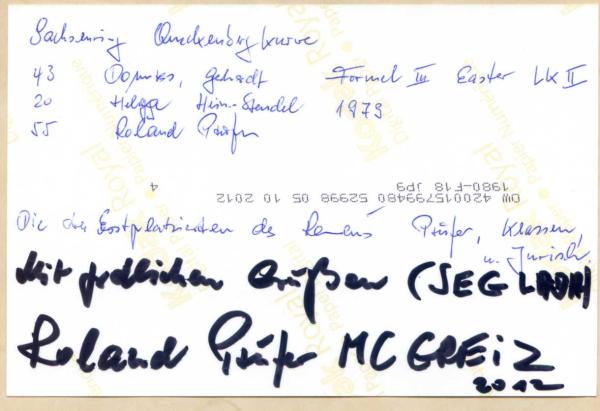 Sachsenring Queckenbergkurve
43 Dommes, Gehardt Formel III Easter LK II
20 Helga Heinr-Stendel 1979
55 Roland Prüfer
4 1980-F18 JP9
DW 420015799480 52998 05 10 2012
Die drei Erstplatzierten des Rennens Prüfer, Klassen,
u. Jurisch.
Mit freundlichen Grüßen (SEG
Roland Prüfer MC GREIZ
2012
Kodak Royal
Digital Papier Numérique